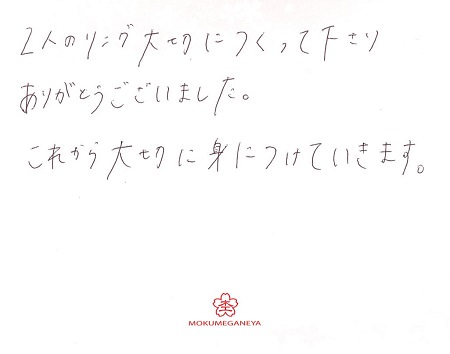 2人のリング大切につくって下さり
ありがとうございました。
これから大切に身につけていきます。
MOKUMEGANEYA